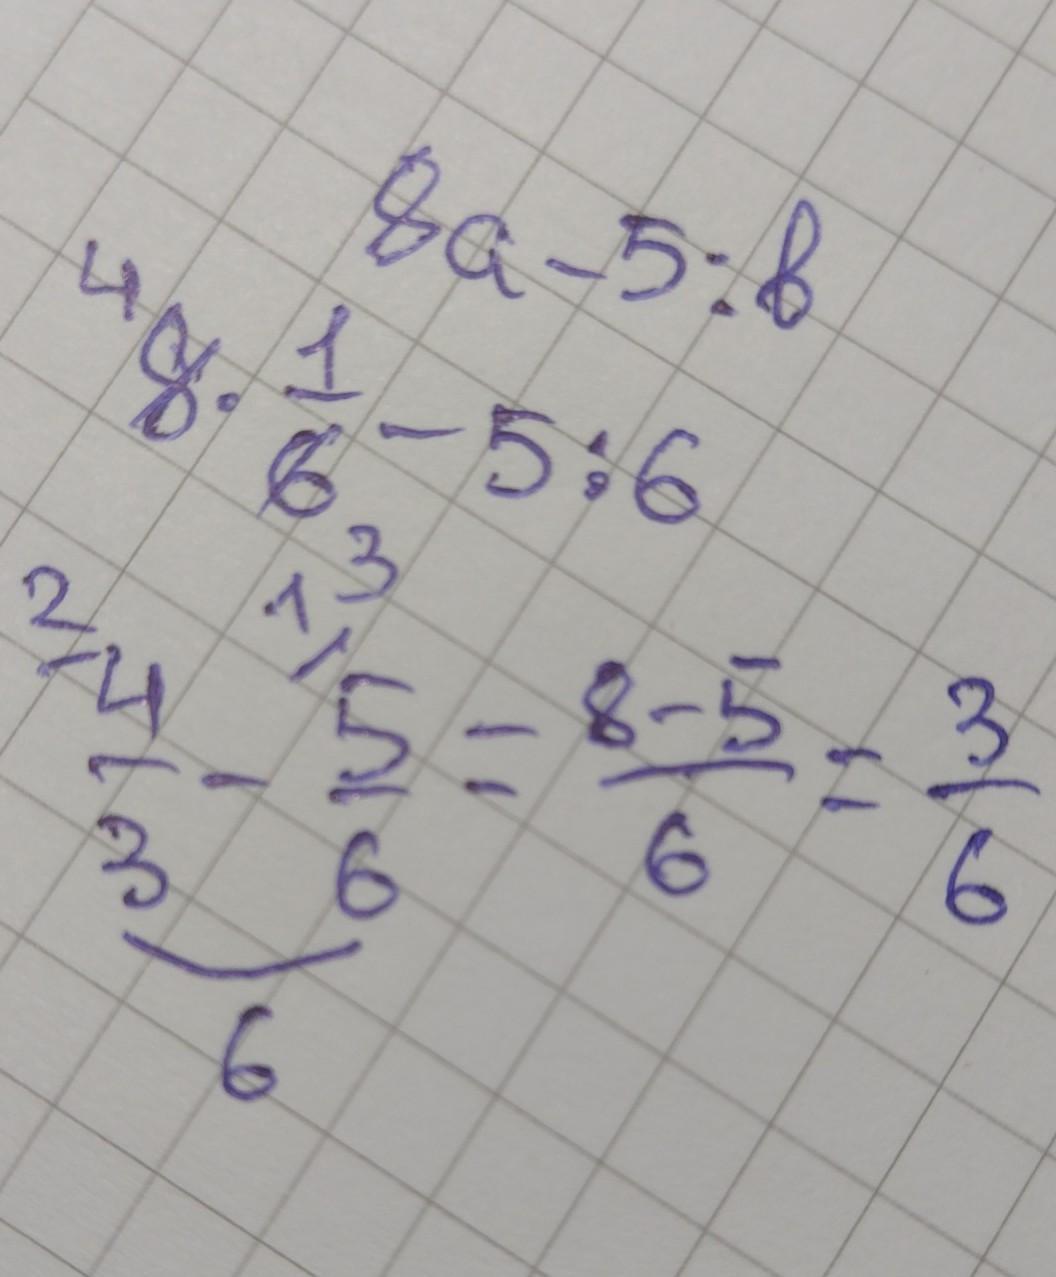 8a - 5 : b
4
8 · 1/6 - 5 : 6
3
2/ 4/3 - 1/ 5/6 = 8-5/6 = 3/6
6